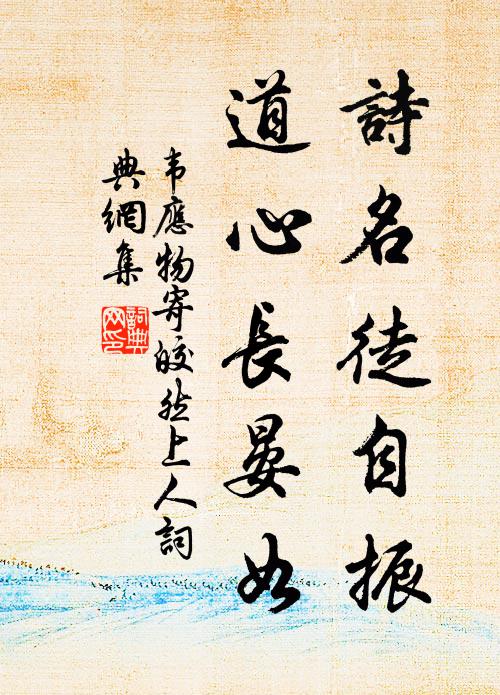 詩名徒自振
道心長晏如
韦應物寄皎然上人詞
典網集
詞典
网印